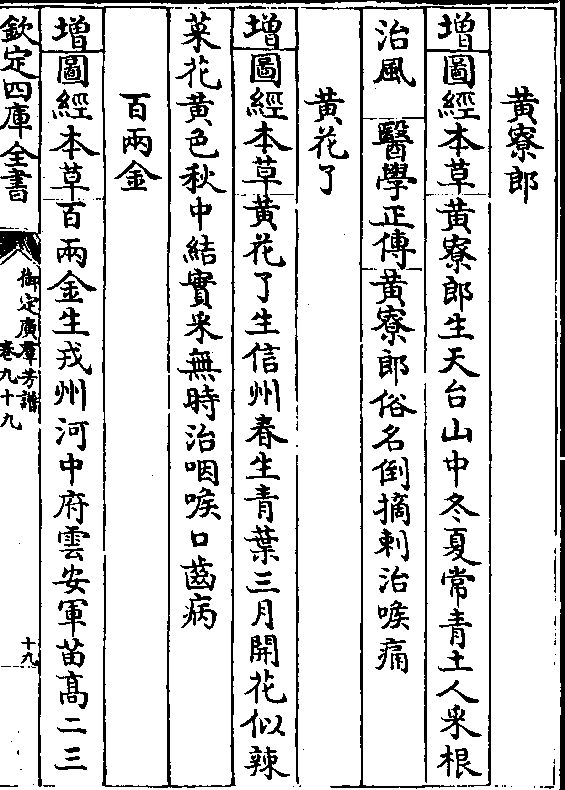 黄寮郎
增圖經本草黄寮郎生天台山中冬夏常青土人采根
治風 醫學正傳黄寮郎俗名倒摘刺治喉痛
黄花了
增圖經本草黄花了生信州春生青葉三月開花似辣
菜花黄色秋中結實采無時治咽喉口齒病
百兩金
增圖經本草百兩金生戎州河中府雲安軍苗高二三
欽定四庫全書
御定廣羣芳譜
卷九十九
十九